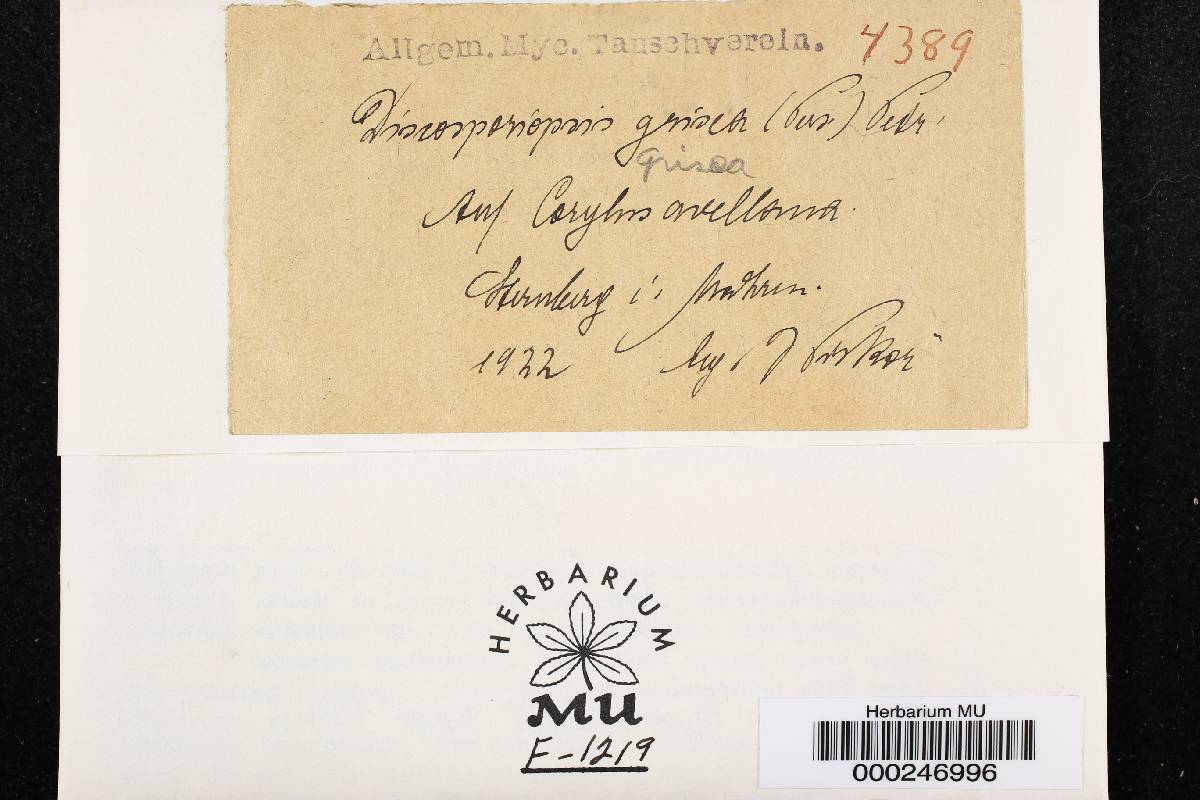 Allgem. Myc. Tauschverein. 4389
Discosporiopsis grisea (Pers) Petr.
Grisea
Auf Corylus avellana.
Sternberg i. Mähren.
1922 leg. J Piskoř
HERBARIUM
MU
F-1219
Herbarium MU
000246996